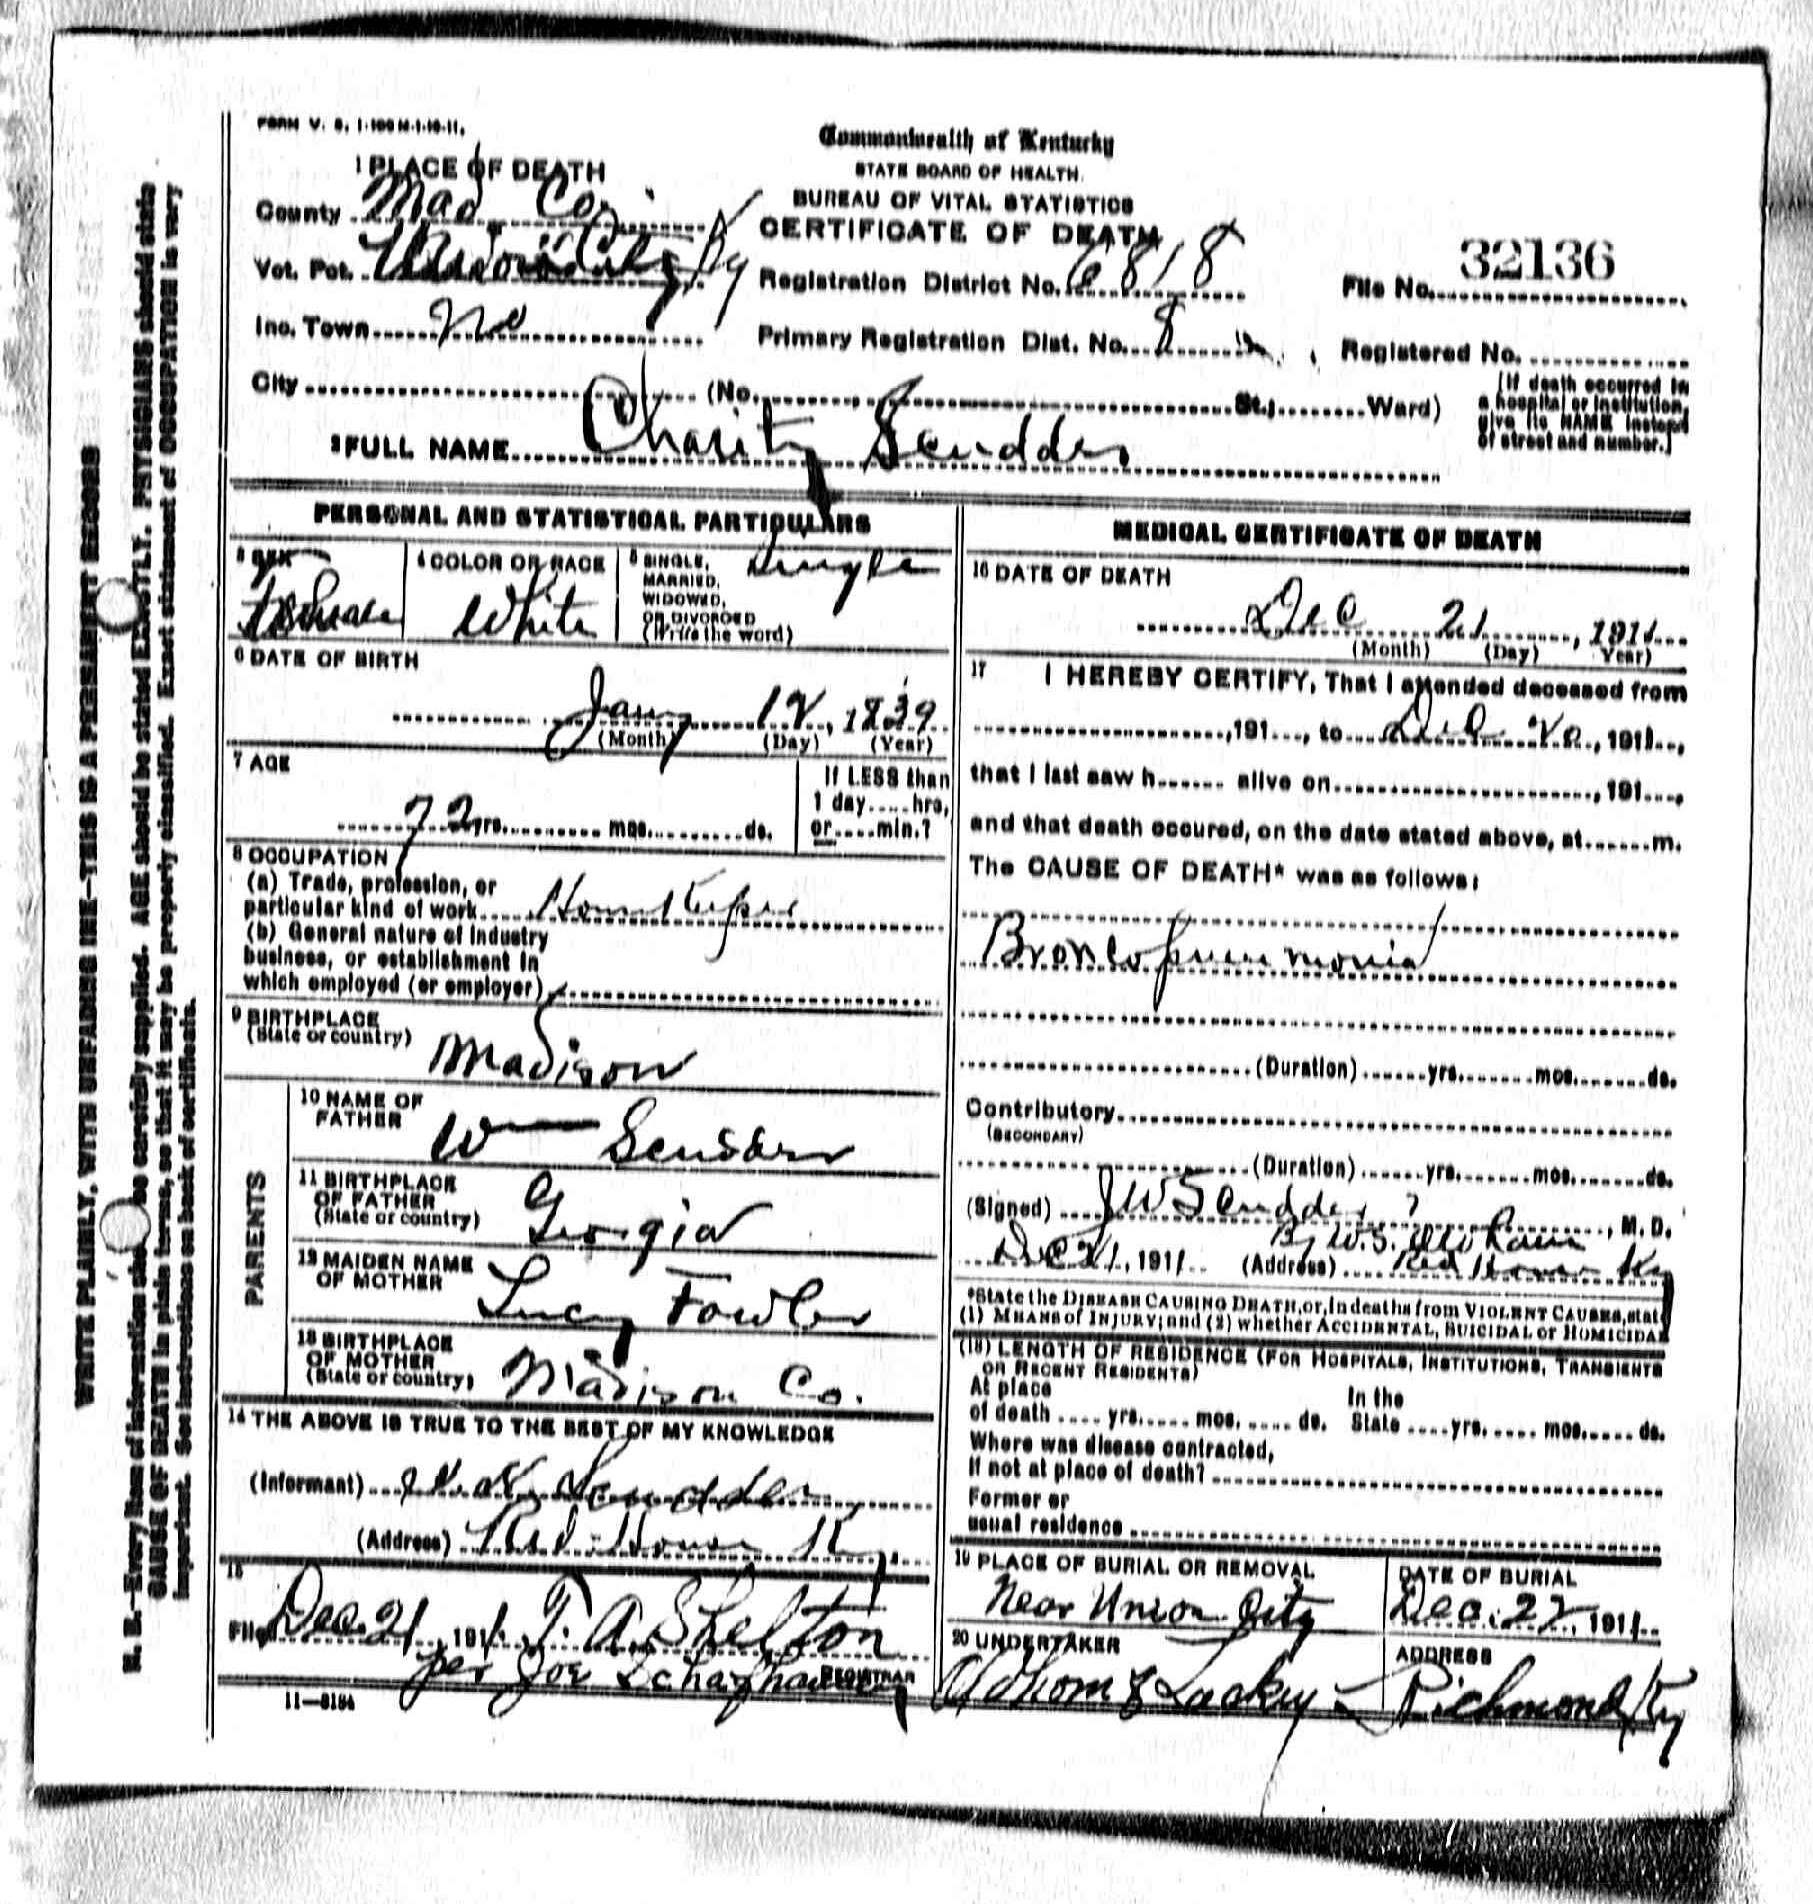 FORM V. S. 1-100M-1-10-11.
Commonwealth of Kentucky
STATE BOARD OF HEALTH.
BUREAU OF VITAL STATISTICS
CERTIFICATE OF DEATH
1 PLACE OF DEATH
County Mad Co.
Vot. Pct. Union City Ky
Inc. Town No
City (No. St.; Ward)
Registration District No. 6818
Primary Registration Dist. No. 8
File No. 32136
Registered No.
[If death occurred in
a hospital or institution,
give its NAME instead
of street and number.]
2 FULL NAME Charity Scudder
PERSONAL AND STATISTICAL PARTICULARS
3 SEX
Female
4 COLOR OR RACE
White
5 SINGLE,
MARRIED,
WIDOWED,
OR DIVORCED
(Write the word)
Single
6 DATE OF BIRTH
Jany 12, 1839
(Month) (Day) (Year)
7 AGE
72 yrs. mos. ds.
If LESS than
1 day hrs.
or min.?
8 OCCUPATION
(a) Trade, profession, or
particular kind of work House Keeper
(b) General nature of industry
business, or establishment in
which employed (or employer)
9 BIRTHPLACE
(State or country)
Madison
PARENTS
10 NAME OF
FATHER
Wm Scudder
11 BIRTHPLACE
OF FATHER
(State or country)
Georgia
12 MAIDEN NAME
OF MOTHER
Lucy Fowler
13 BIRTHPLACE
OF MOTHER
(State or country)
Madison Co.
14 THE ABOVE IS TRUE TO THE BEST OF MY KNOWLEDGE
(Informant) Scudder
(Address) Red House Ky.
15
Filed Dec. 21, 1911. T. A. Shelton
per Joe REGISTRAR
11—3184
MEDICAL CERTIFICATE OF DEATH
16 DATE OF DEATH
Dec 21, 1911
(Month) (Day) Year)
17 I HEREBY CERTIFY, That I attended deceased from
, 191 , to Dec 20, 1911,
that I last saw h alive on , 191 ,
and that death occured, on the date stated above, at m.
The CAUSE OF DEATH* was as follows:
Bronco pneumonia
(Duration) yrs. mos. ds.
Contributory
(SECONDARY)
(Duration) yrs. mos. ds.
(Signed) J W Scudder, M. D.
By W. S.
Dec 21, 1911 (Address) Red House Ky
*State the DISEASE CAUSING DEATH, or, in deaths from VIOLENT CAUSES, state
(1) MEANS of INJURY; and (2) whether ACCIDENTAL, SUICIDAL or HOMICIDAL
(18) LENGTH OF RESIDENCE (FOR HOSPITALS, INSTITUTIONS, TRANSIENTS
OR RECENT RESIDENTS)
At place
of death yrs. mos. ds.
In the
State yrs. mos. ds.
Where was disease contracted,
If not at place of death?
Former or
usual residence
19 PLACE OF BURIAL OR REMOVAL
Near Union City
DATE OF BURIAL
Dec. 22, 1911
20 UNDERTAKER
Oldham & Lackey
ADDRESS
Richmond, Ky
WRITE PLAINLY, WITH UNFADING INK—THIS IS A PERMANENT RECORD
N. B.—Every item of information should be carefully supplied. AGE should be stated EXACTLY. PHYSICIANS should state
CAUSE OF DEATH in plain terms, so that it may be properly classified. Exact statement of OCCUPATION is very
important. See instructions on back of certificate.